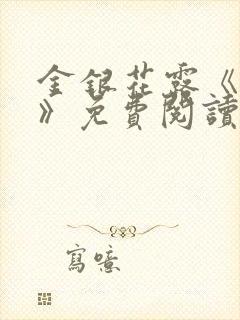 金銀花露《
》免費閱讀
寫噫